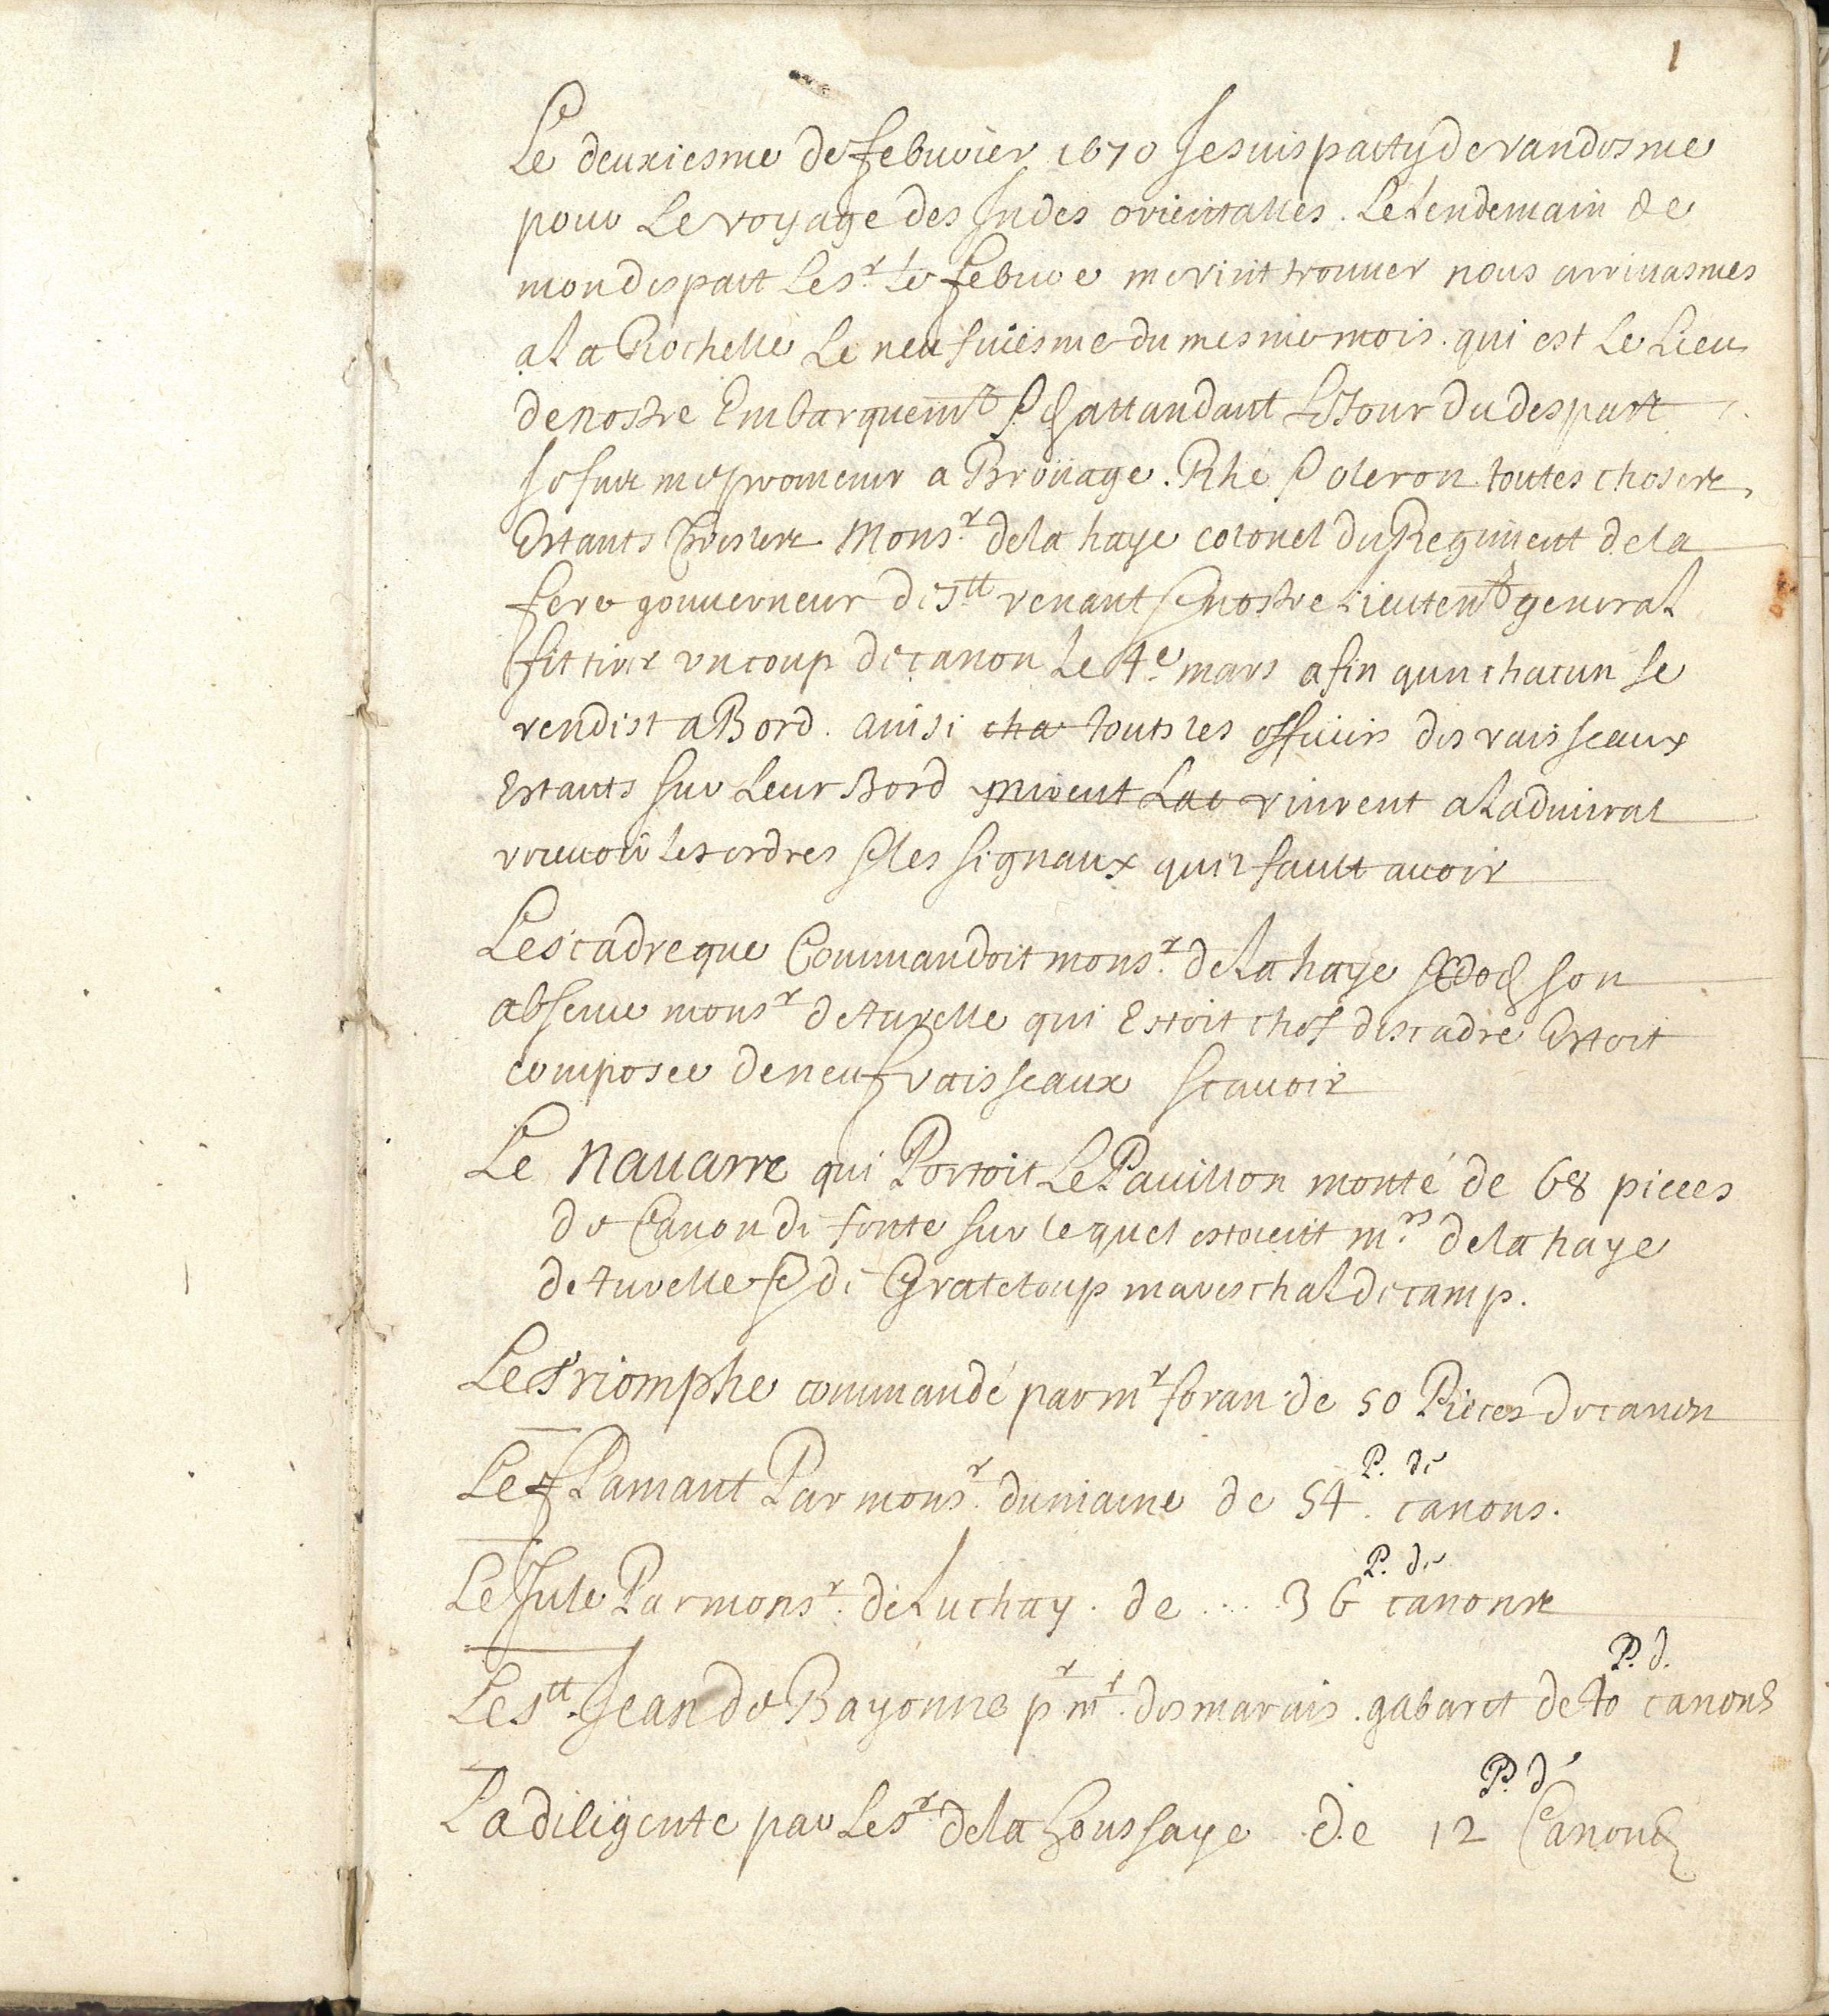 1
Le deuxiesme de febuvier 1670 Je suis party de vandosme
pour Le voyage des Indes orientalles. Le Lendemain de
mon despart Le sr. le febure me vint trouuer nous arriuasmes
a La Rochelle Le neufuiesme du mesme mois. qui est Le Lieu
de nostre Embarquemt & En attandant Le Jour du despart
Je fus me promener a Broüage. Rhé & oleron toutes choses
Estants Mons.r de la haye colonel du Regiment de la
fere gouuerneur de stt venant & nostre Lieutent general
fit tirer vn coup de canon Le 4e mars afin qun chacun se
rendist a Bord. ainsi cha touts les officiers des vaisseaux
Estants sur Leur Bord vinrent a Ladmiral
receuoir les ordres & les signaux quil fault auoir
Lescadre que Commandoit mons.r de La haye & En son
absence mons.r de turelle qui Estoit chef descadre Estoit
composee de neuf vaisseaux scauoir
Le nauarre qui Portoit Le Pauillon monté de 68 pieces
de Canon de fonte sur lequel estoient m.rs de la haye
de turelle & de Grateloup mareschal de camp.
Le Triomphe commandé par mr foran de 50 Pieces de canon
Le fLamant Par mons.r du maine de 54 P. de canons.
Le Jule Par mons.r de Luchay. de .... 36 P. de canons
Le stt. Jean de Bayonne pr mr. desmarais. gabaret de 40 P. d. canons
La diligente par Le sr. de la houssaye de 12 P. d. Canons